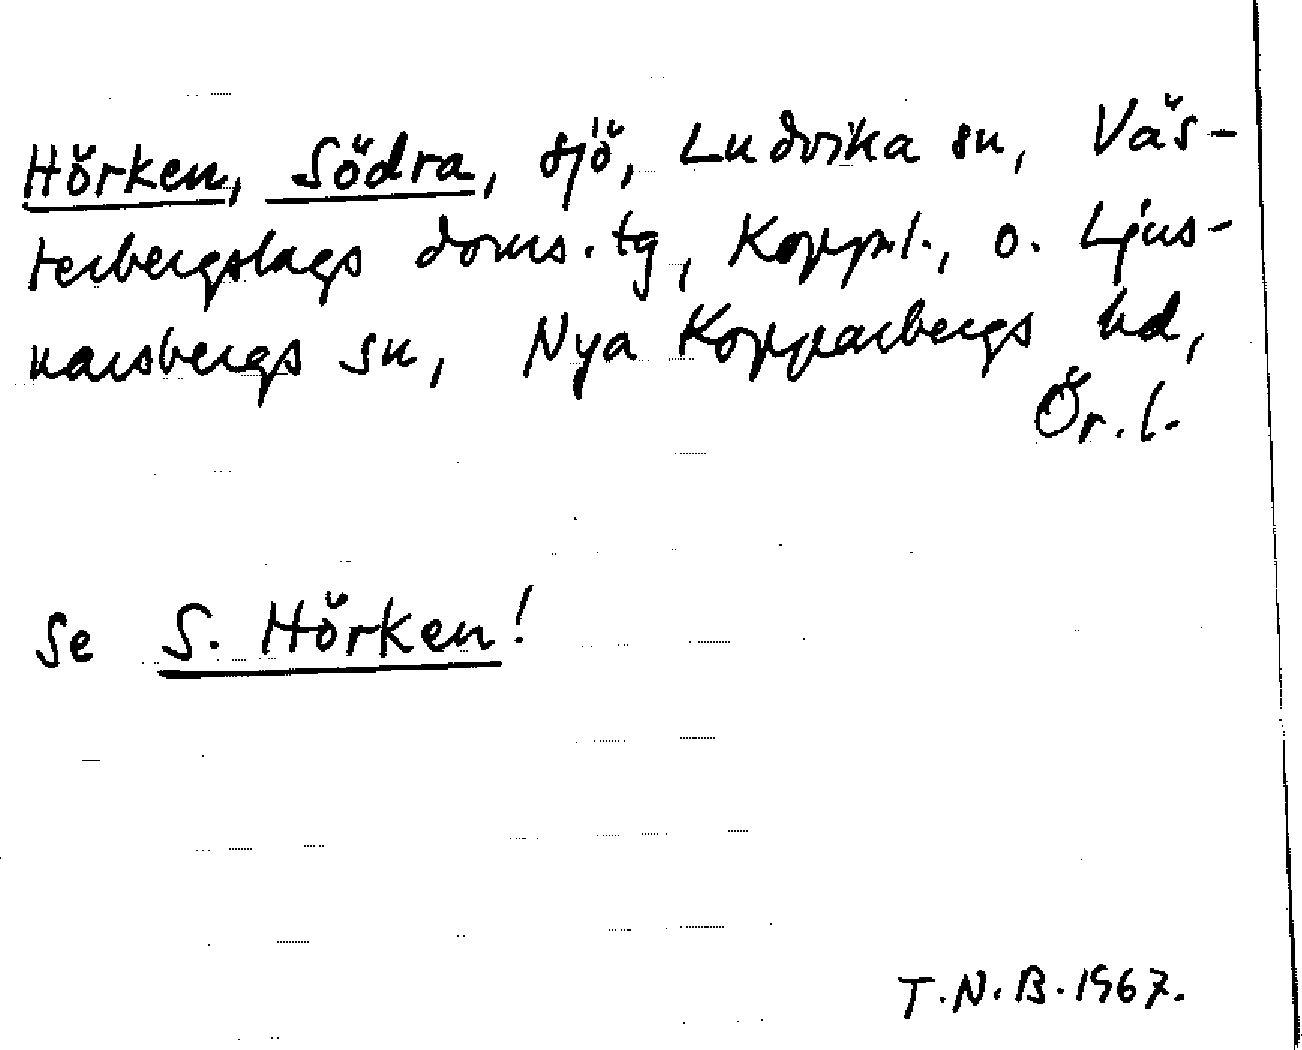 Hörken, Södra, sjö, Ludvika sn, Väs-
terbergslags doms. tg, Kopp.l., o. Ljus-
narsbergs sn, Nya Kopparbergs hd,
Ör. l.
Se S. Hörken!
T.N.B. 1967.